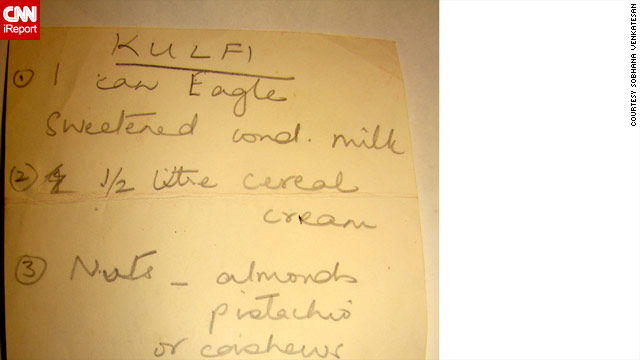 CNN
iReport
KULFI
① 1 can Eagle
Sweetened cond. milk
② 1/2 litre cereal
cream
③ Nuts - almonds
pistachio
or cashews
COURTESY SOBHANA VENKATESAN